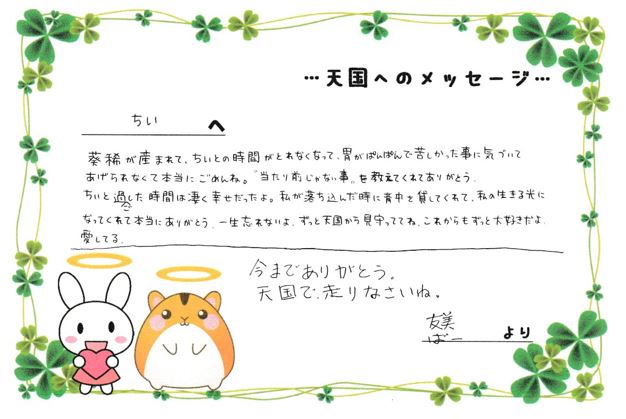 …天国へのメッセージ…
ちい へ
葵稀が産まれて、ちいとの時間がとれなくなって、胃がぱんぱんで苦しかった事に気づいて
あげられなくて本当にごめんね。"当たり前じゃない事"を教えてくれてありがとう.
ちいと過ごした時間は凄く幸せだったよ。私が落ち込んだ時に背中を貸してくれて、私の生きる光に
なってくれて本当にありがとう.一生忘れないよ.ずっと天国から見守っててね.これからもずっと大好きだよ.
愛してる.
今までありがとう。
天国で、走りなさいね。
友美
ばー より